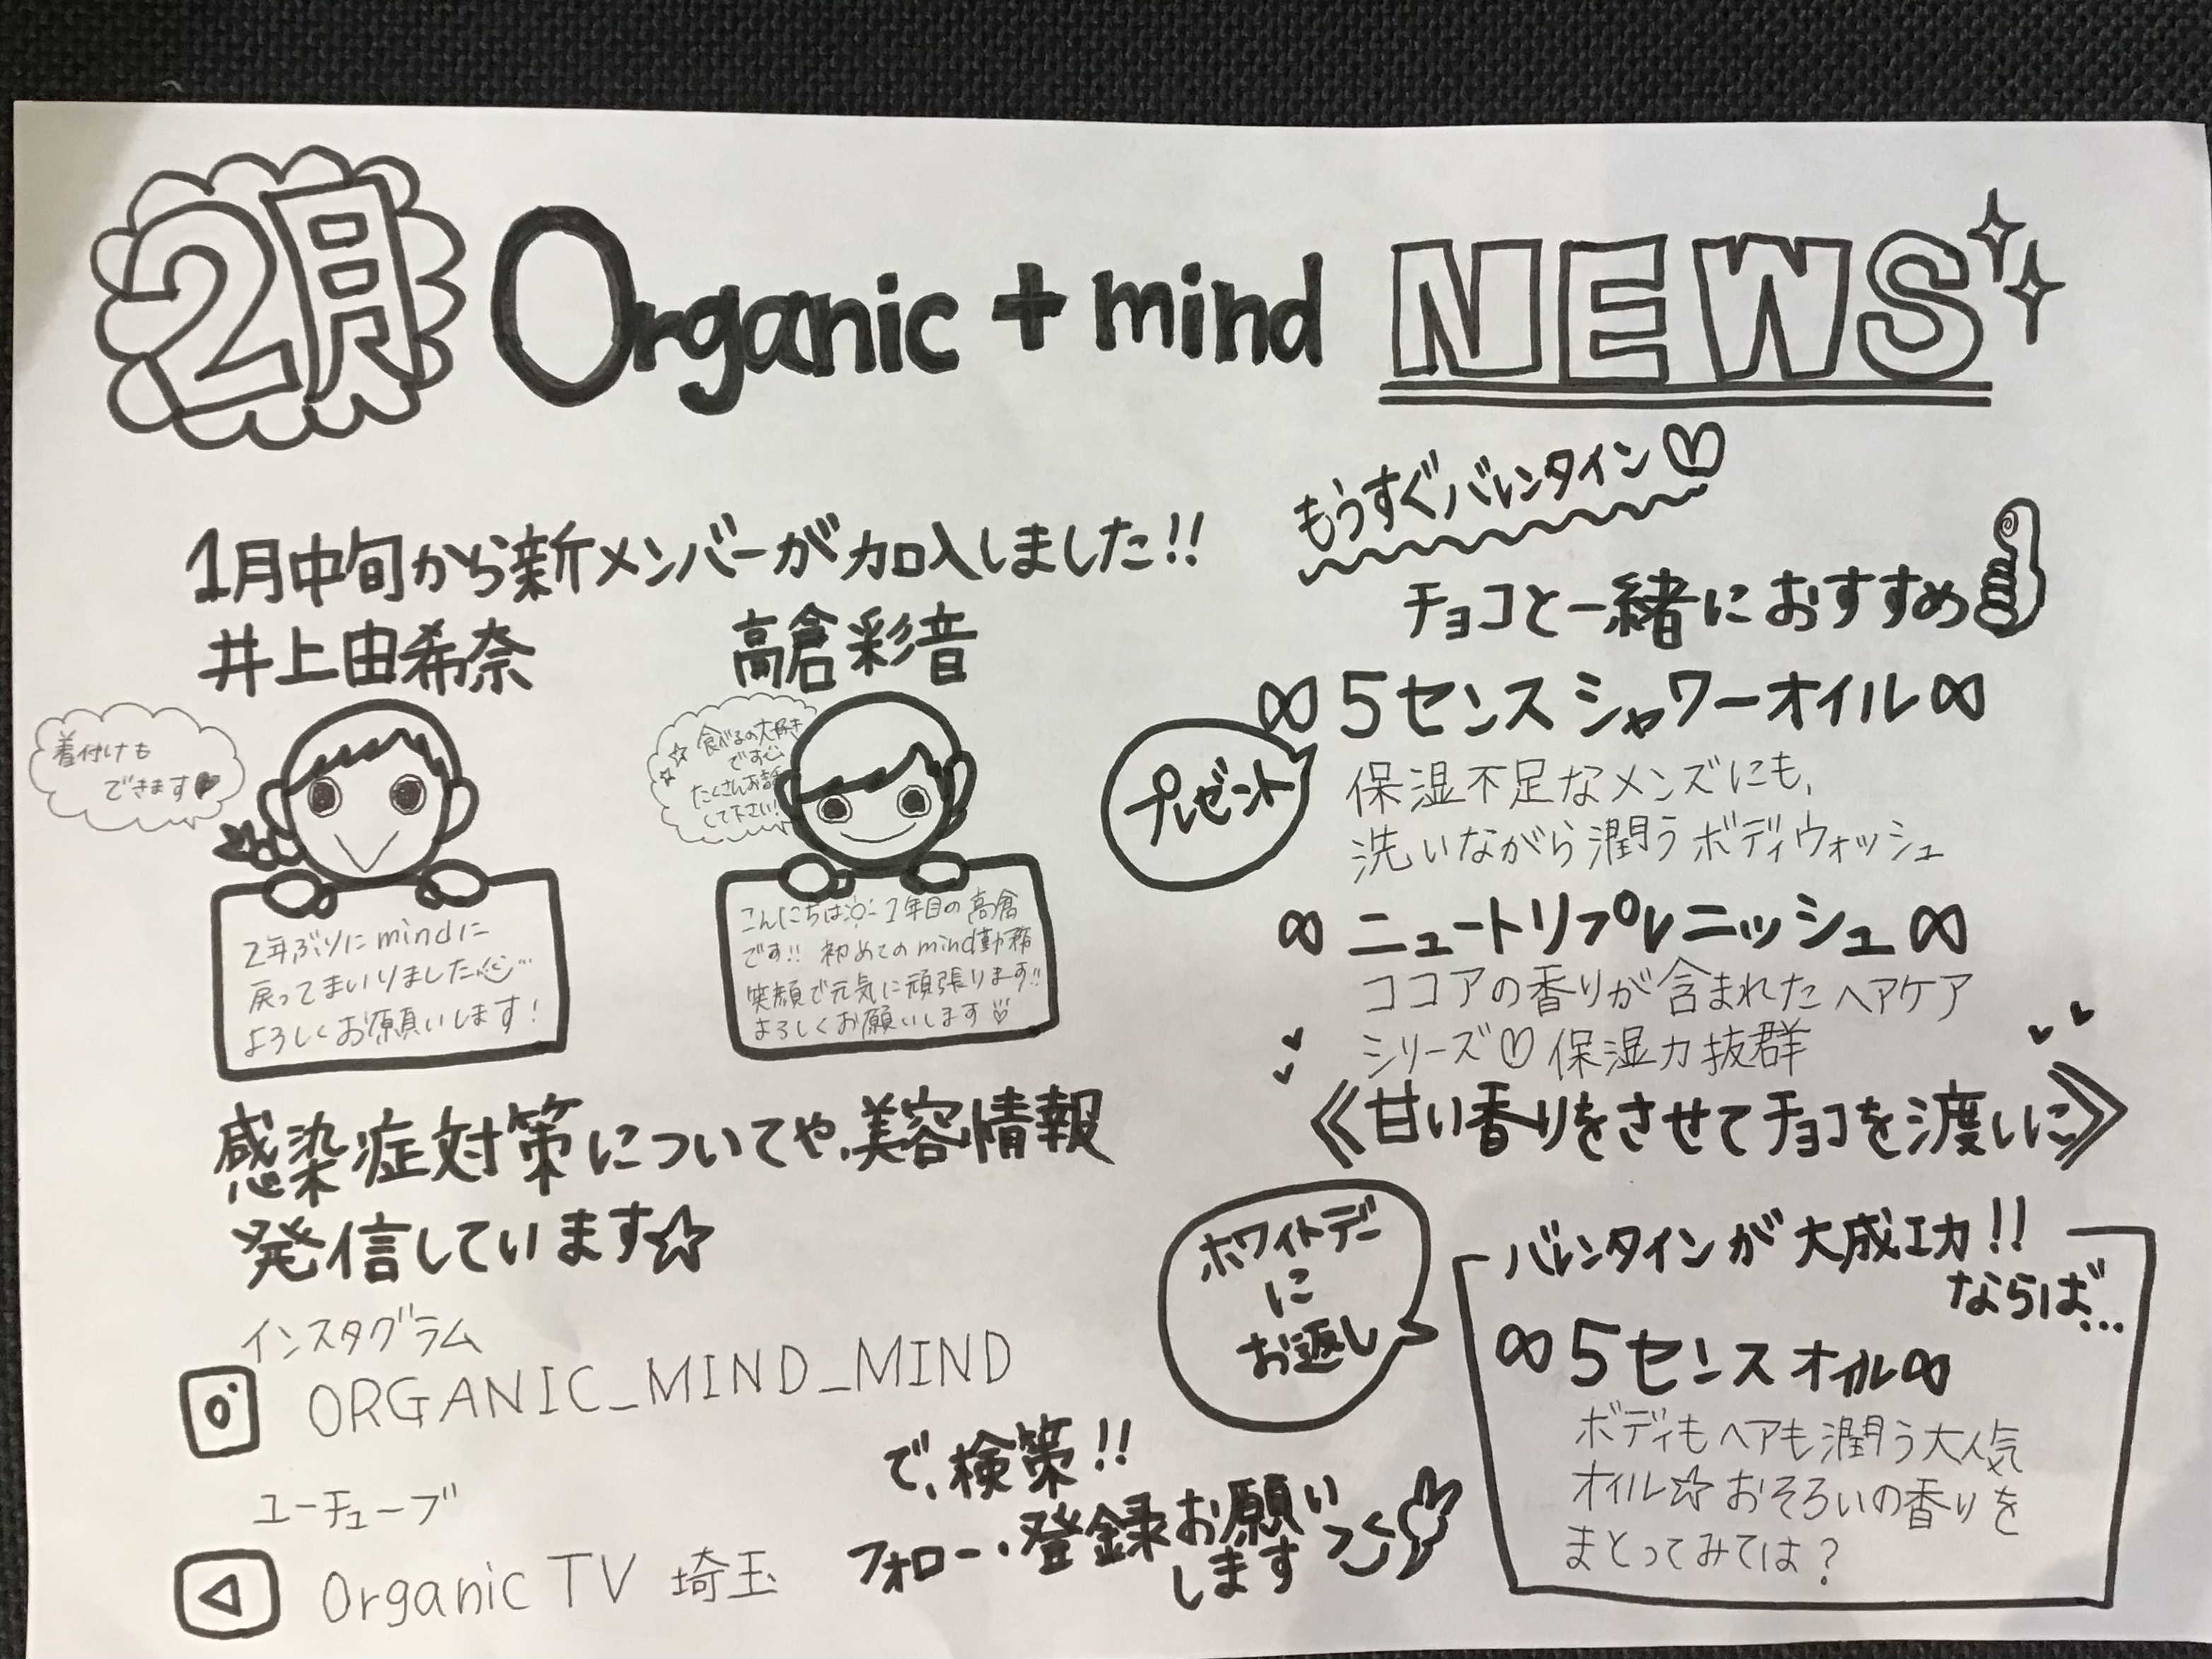 2月 Organic + mind NEWS
1月中旬から新メンバーが加入しました!!
井上由希奈
着付けも
できます♥
2年ぶりにmindに
戻ってまいりました
よろしくお願いします!
高倉彩音
食べるの大好き
です
たくさんお話
して下さい!
こんにちは 1年目の高倉
です!! 初めてのmind勤務
笑顔で元気に頑張ります!!
よろしくお願いします♡
感染症対策についてや、美容情報
発信しています☆
インスタグラム
ORGANIC_MIND_MIND
ユーチューブ
Organic TV 埼玉
で、検策!!
フォロー・登録お願い
します
もうすぐバレンタイン♡
チョコと一緒におすすめ
プレゼント
∞5センスシャワーオイル∞
保湿不足なメンズにも、
洗いながら潤うボディウォッシュ
∞ニュートリプレニッシュ∞
ココアの香りが含まれたヘアケア
シリーズ♡保湿力抜群
《甘い香りをさせてチョコを渡しに》
ホワイトデー
に
お返し
バレンタインが大成功!!
ならば…
∞5センスオイル∞
ボディもヘアも潤う大人気
オイル☆おそろいの香りを
まとってみては?